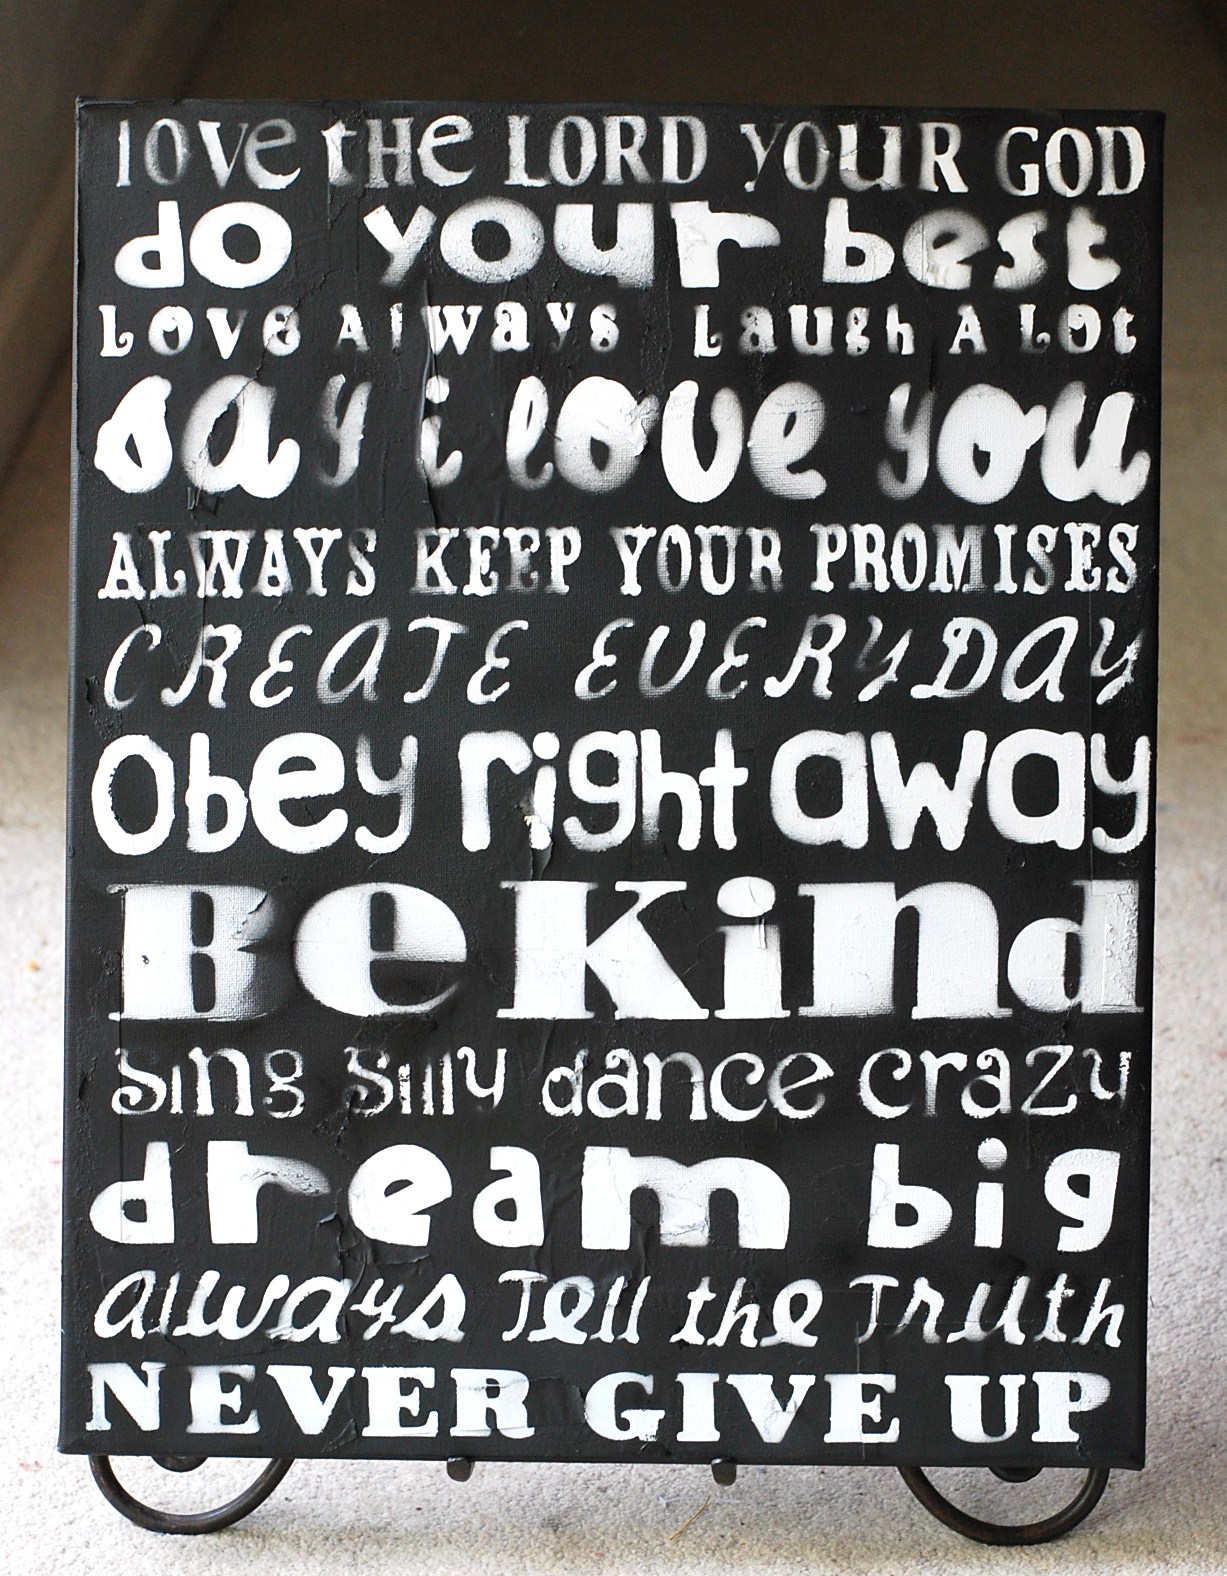 love the LORD your GOD
do your best
Love Always Laugh A Lot
say i love you
ALWAYS KEEP YOUR PROMISES
CREATE EVERYDAY
Obey right away
Be Kind
Sing Silly dance crazy
dream big
always Tell the Truth
NEVER GIVE UP